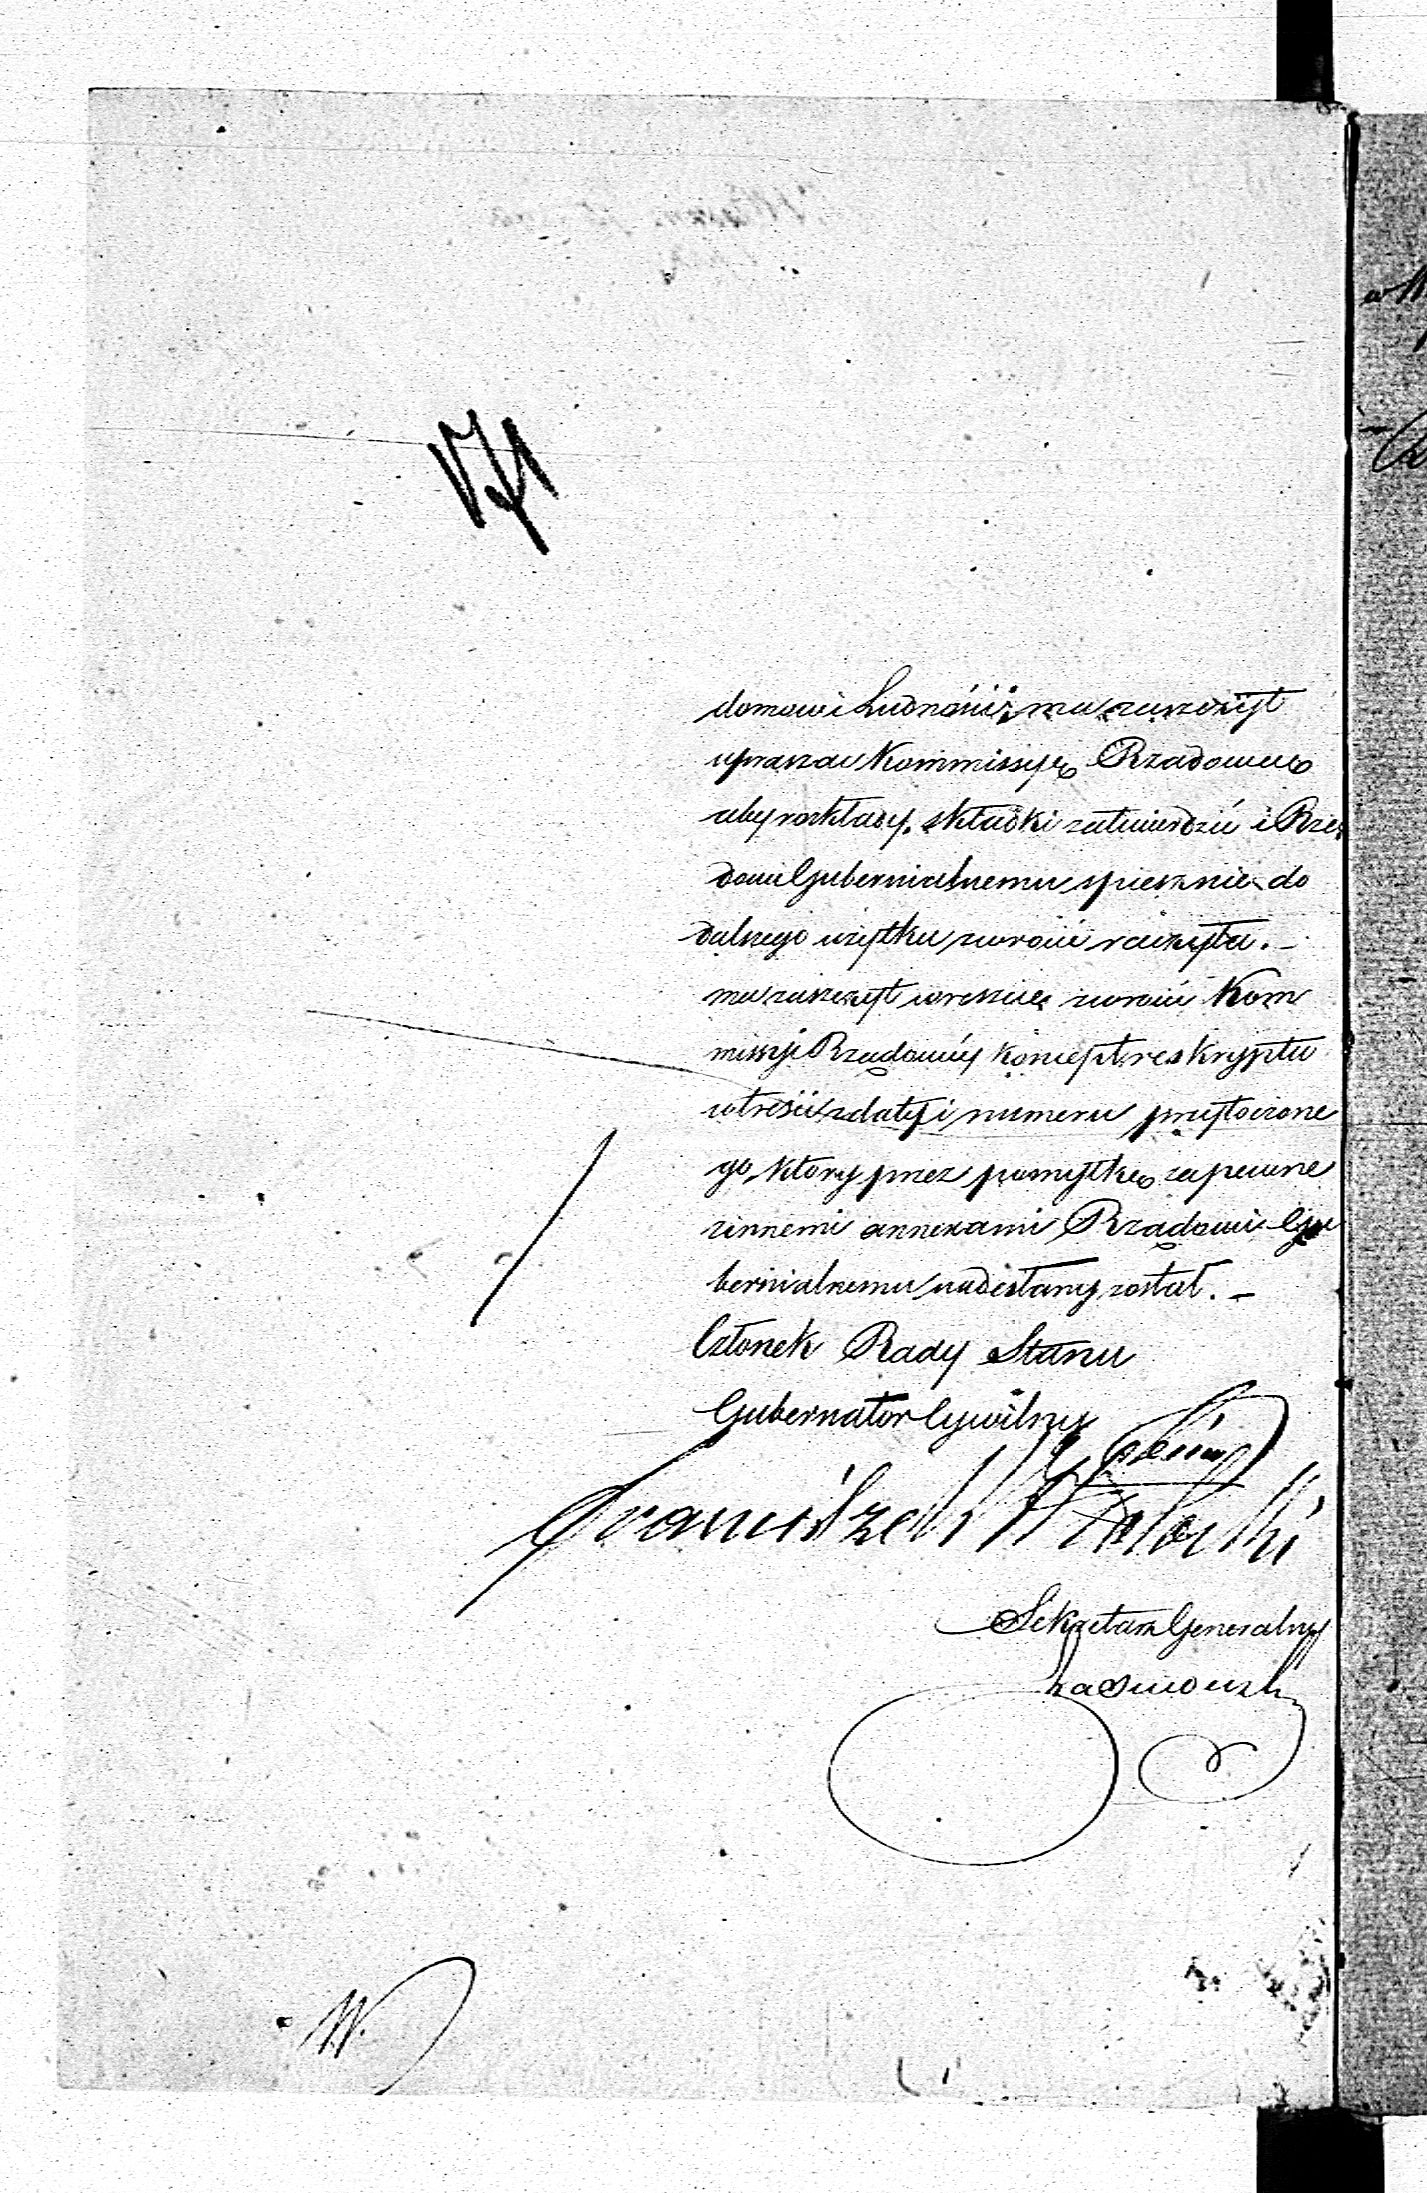 domowi Ludności, ma zaszczyt
upraszać Kommissyę Rządową
aby rozkłady składki zatwierdzić i Rzą
dowi Gubernialnemu spiesznie do
dalszego użytku zwrócić raczyła. –
ma zaszczyt wreszcie zwrócić Kom
missyi Rządowéy koncept reskryptu
w treści z daty i numeru przytoczone
go, który przez pomyłkę zapewne
z innemi annexami Rządowi Gu
bernialnemu nadesłany został. –
Członek Rady Stanu
Gubernator Cywilny
Franciszek
Sekretarz Generalny